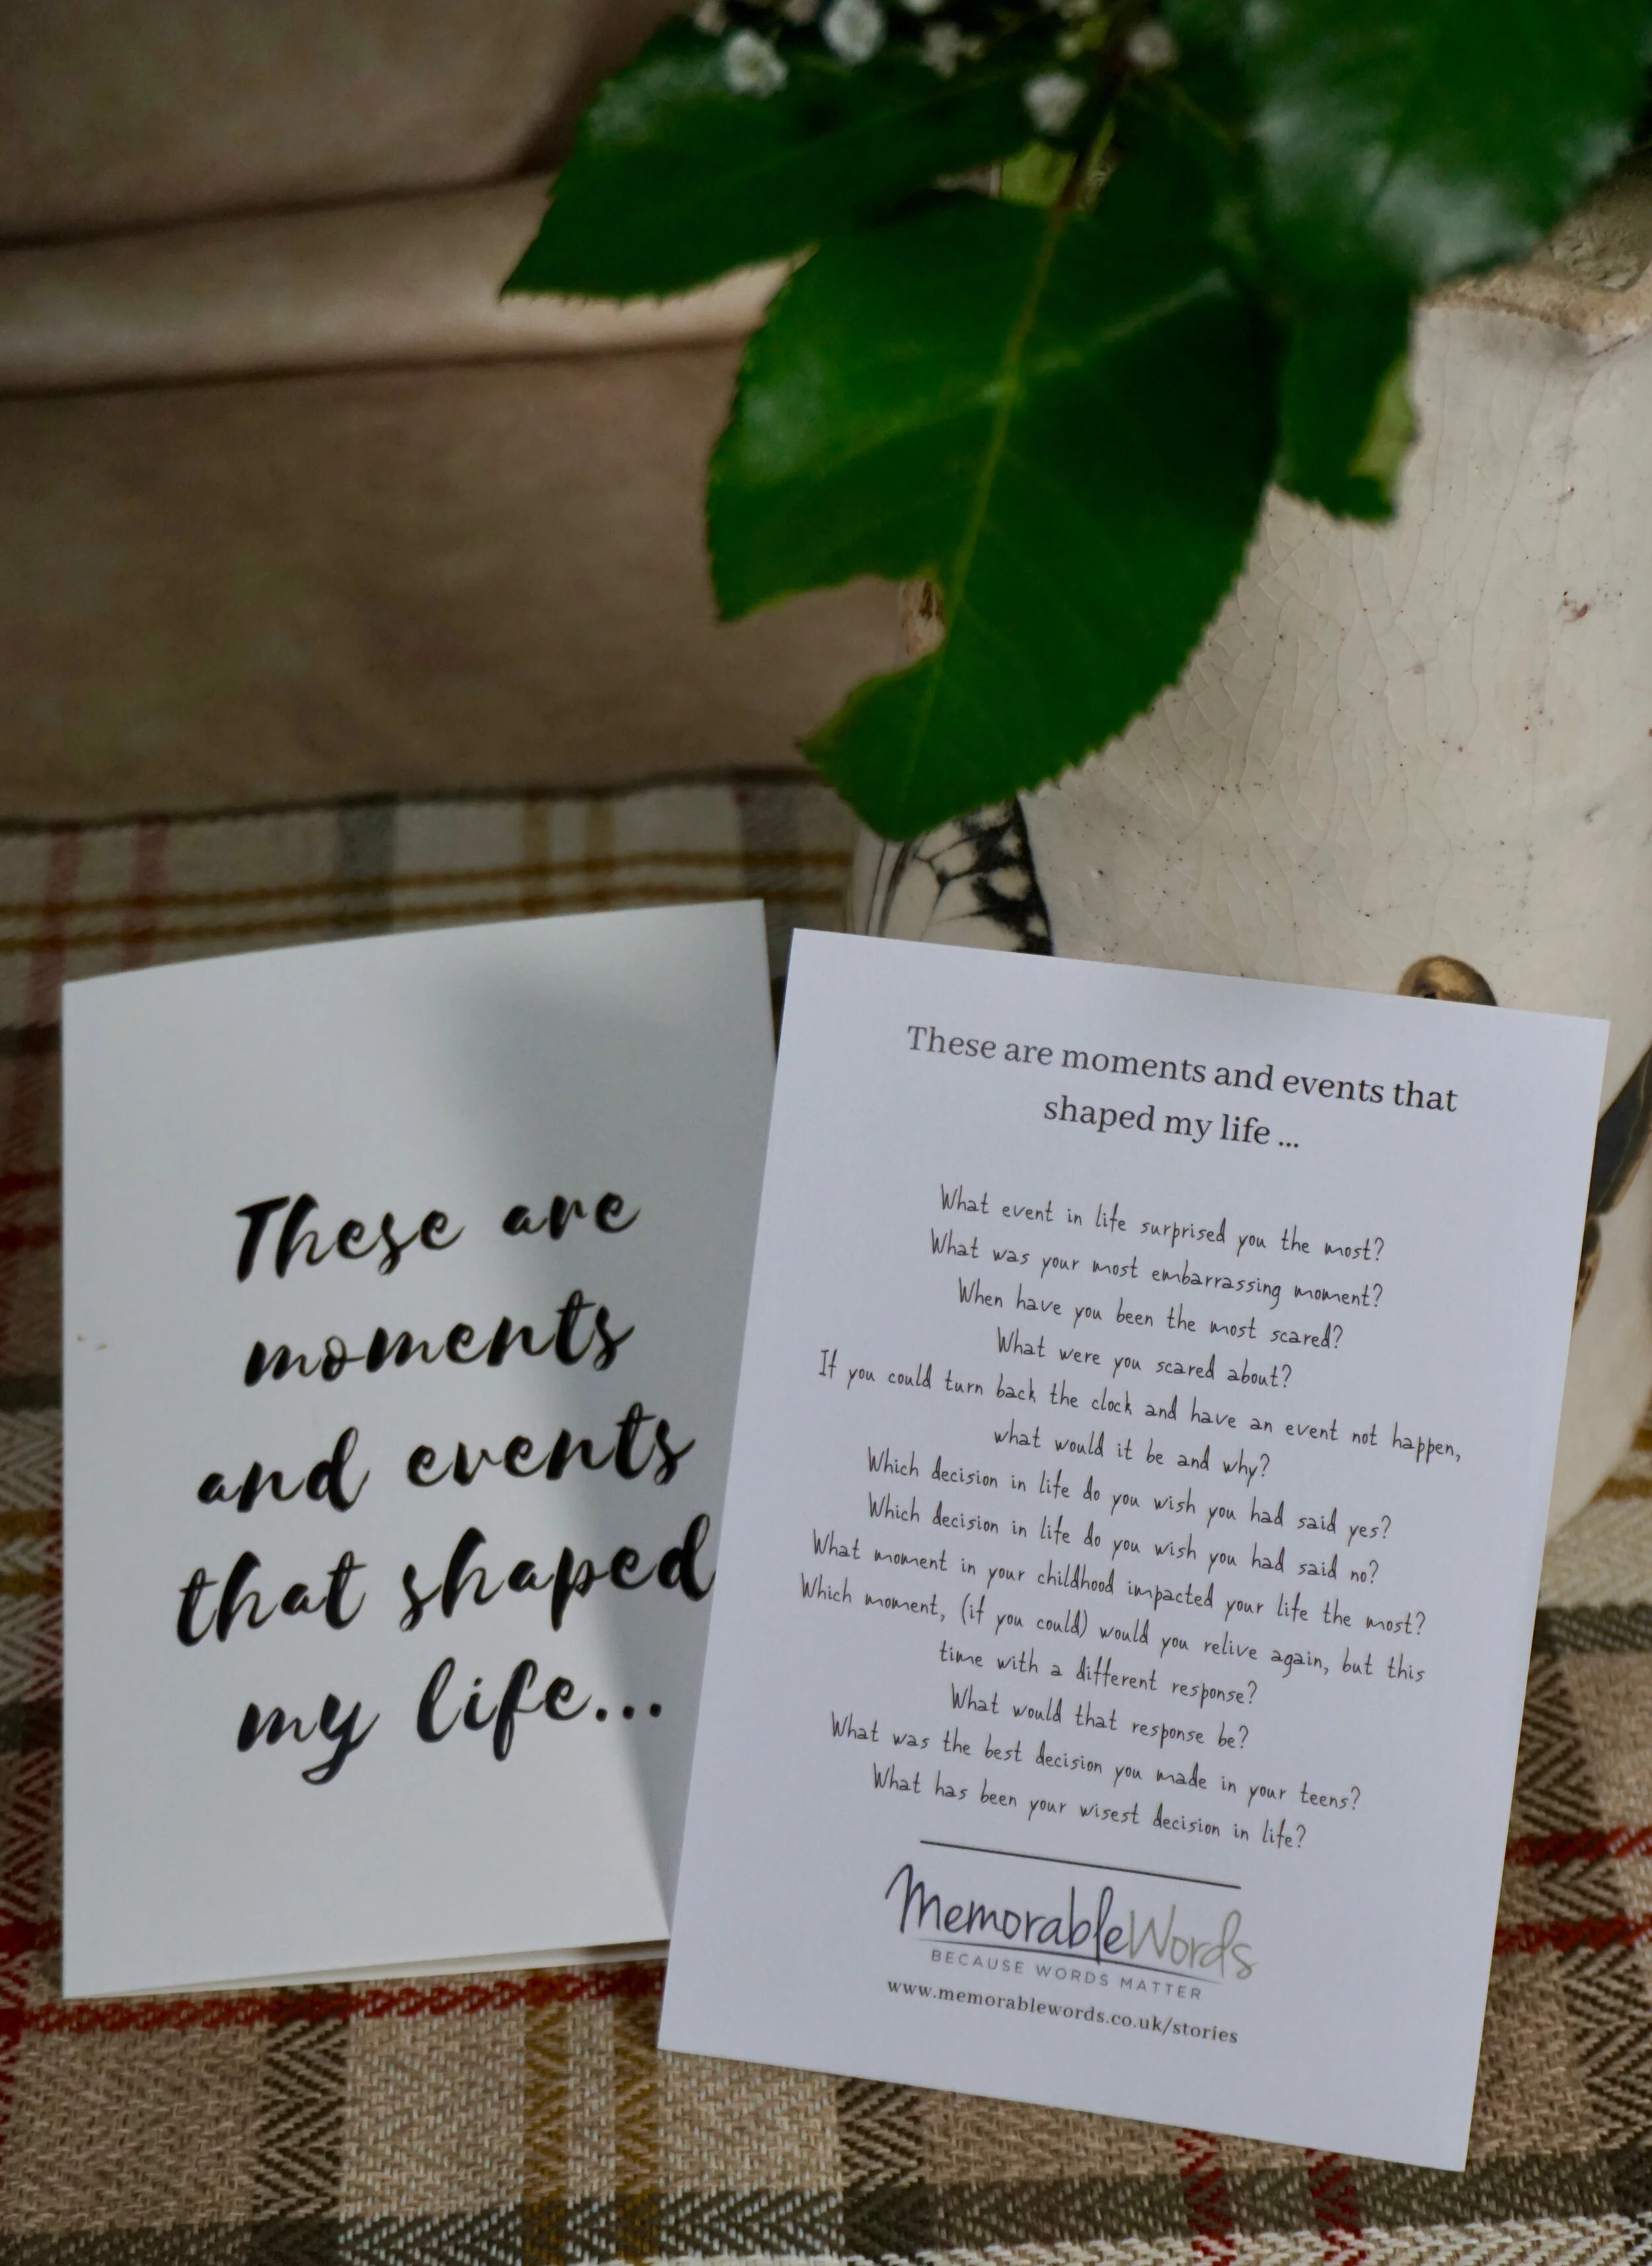 These are
moments
and events
that shaped
my life...
These are moments and events that
shaped my life ...
What event in life surprised you the most?
What was your most embarrassing moment?
When have you been the most scared?
What were you scared about?
If you could turn back the clock and have an event not happen,
what would it be and why?
Which decision in life do you wish you had said yes?
Which decision in life do you wish you had said no?
What moment in your childhood impacted your life the most?
Which moment, (if you could) would you relive again, but this
time with a different response?
What would that response be?
What was the best decision you made in your teens?
What has been your wisest decision in life?
MemorableWords
BECAUSE WORDS MATTER
www.memorablewords.co.uk/stories